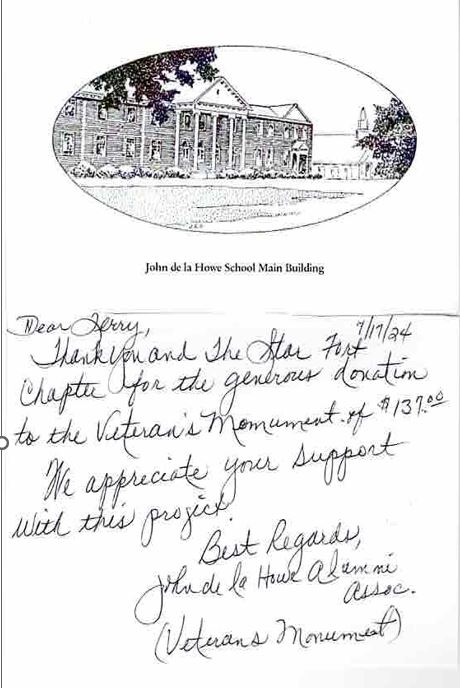 John de la Howe School Main Building
Dear Terry,
7/17/24
Thank you and The Star Fort
Chapter for the generous donation
to the Veteran's Monument of $137.00
We appreciate your support
with this project.
Best Regards,
John de la Howe Alumni
Assoc.
(Veterans Monument)